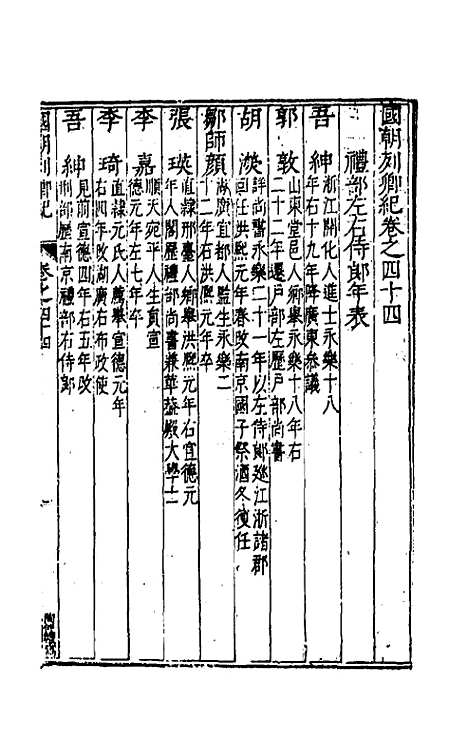 國朝列卿紀卷之四十四
禮部左右侍郎年表
吾紳 浙江開化人進士永樂十八
年右十九年降廣東參議
郭敦 山東堂邑人鄉舉永樂十八年右
二十二年遷戶部左歷戶部尚書
胡濙 詳尚書永樂二十一年以左侍郎廵江浙諸郡
回任洪熙元年春改南京國子祭酒冬復任
鄒師顏 湖廣宜都人監生永樂二
十二年右洪熙元年卒
張瑛 直隷邢臺人鄉舉洪熙元年右宣德元
年入閣歷禮部尚書兼華蓋殿大學士
李嘉 順天宛平人生員宣
德元年左七年卒
李琦 直隷元氏人薦舉宣德元年
右四年改湖廣右布政使
吾紳 見前宣德四年右五年改
刑部歷南京禮部右侍郎
國朝列卿紀 卷之四十四 一